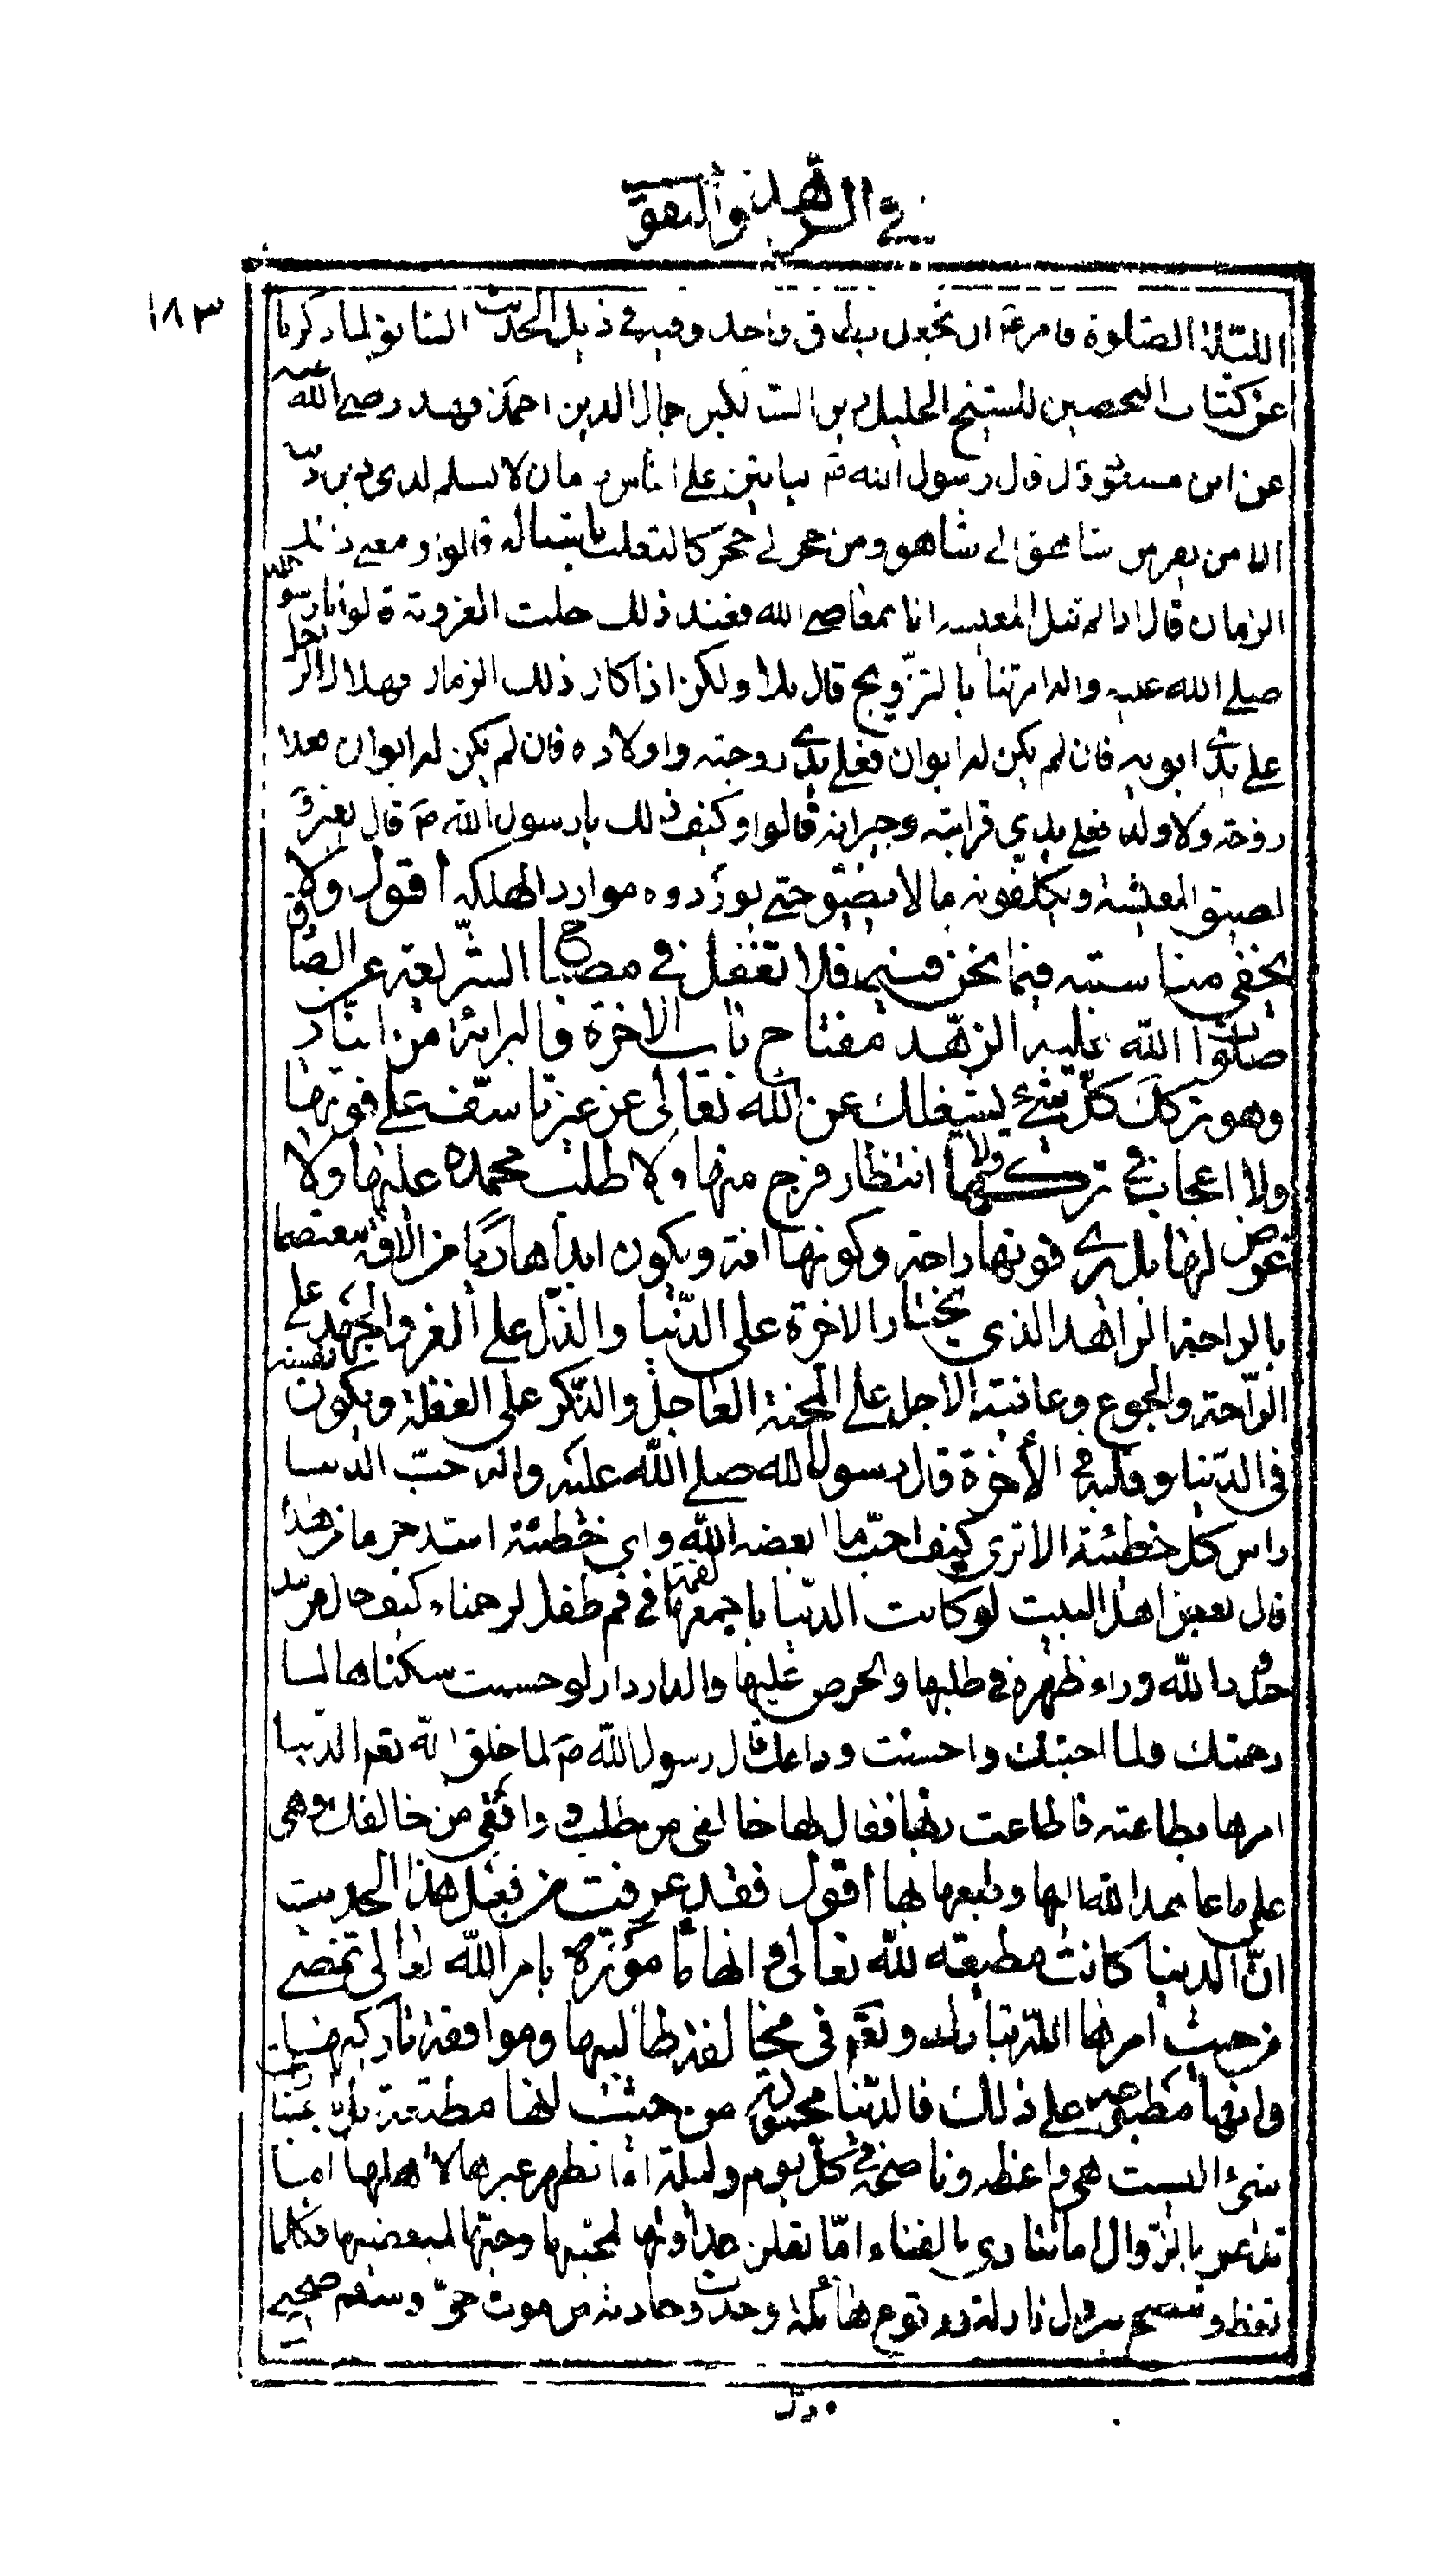 في الزهد والتقوى
١٨٣
الليلة الصلوة فامر ان يجعل في واحد وفيه في ذيل الحديث السابق لما ذكرنا
عن كتاب التحصين للشيخ الجليل جمال الدين احمد فهد رضي الله عنه
عن ابن مسعود قال قال رسول الله ص لياتين على الناس زمان لا يسلم لذي دين دينه
الا من يفر من شاهق الى شاهق ومن حجر الى حجر كالثعلب باشباله قالوا ومتى ذلك
الزمان قال اذا لم تنل المعيشة الا بمعاصي الله فعند ذلك حلت العزوبة قالوا يا رسول الله
صلى الله عليه واله امرتنا بالتزويج قال بلا ولكن اذا كان ذلك الزمان فهلاك الرجل
على يدي ابويه فان لم يكن له ابوان فعلى يدي زوجته واولاده فان لم يكن له ابوان فعلا
زوجة ولا ولد فعلى يدي قرابته وجيرانه قالوا وكيف ذلك يا رسول الله ص قال يعيرونه
لضيق المعيشة ويكلفونه ما لا يطيق حتى يوردوه موارد الهلكة اقول ولا
يخفى مناسبته فيما نحن فيه فلا تغفل في مصباح الشريعة عن الصادق
صلوات الله عليه الزهد مفتاح باب الاخرة والبرائة من النار
وهو تركك كل شيء يشغلك عن الله تعالى عن غير تاسف على فوتها
ولا اعجاب في تركها ولا انتظار فرج منها ولا طلب محمدة عليها ولا
عوض لها بل يرى فوتها راحة وكونها افة ويكون ابدا هاربا من الافة معتصما
بالراحة الزاهد الذي يختار الاخرة على الدنيا والذل على العز والجهد على
الراحة والجوع وعافية الاجل على المحنة العاجل والذكر على الغفلة ويكون نفسه
في الدنيا وقلبه في الأخرة قال رسول الله صلى الله عليه واله حب الدنيا
راس كل خطيئة الا ترى كيف احب ما ابغضه الله واي خطيئة اشد جرما من هذا
قال بعض اهل البيت لو كانت الدنيا باجمعها لقمة في فم طفل لرحمناه كيف حال من نبذ
حدود الله وراء ظهره في طلبها والحرص عليها والدار دار لو حسنت سكناها لما
رحمتك ولما احبتك واحسنت وداعك قال رسول الله ص لما خلق الله تعم الدنيا
امرها بطاعته فاطاعت ربها فقال لها خالفي من طلبك ووافقي من خالفك وهي
على ما عاهد الله اليها وطبعها بها اقول فقد عرفت من هذا الحديث
ان الدنيا كانت مطيعة لله تعالى وانها مؤتمرة بامر الله تعالى
من حيث امرها الله تبارك وتعم في مخالفة طالبيها وموافقة تاركيها
وانها على ذلك فالدنيا من حيث انها مطيعة
شيئ اليست هي واعظة وناصحة في كل يوم وليلة اما تظهر عبرها لاهلها اما
تدعو بالزوال اما تنادي بالفناء اما تعلن عداوتها لمحبيها وحبها لمبغضيها فكلما
تعظ وتنصح بنزول نازلة ووقوع هائلة وحدوث حادثة من موت حي وسقم صحيح